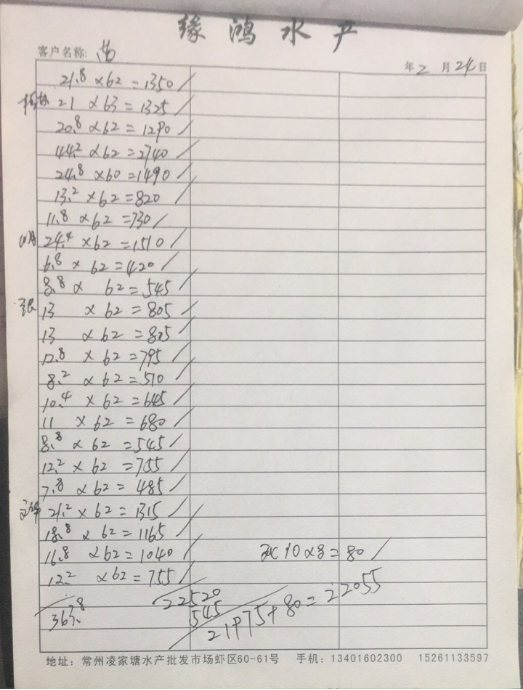 缘鸿水产
客户名称: 苗
年2月24日
21.8 ×62=1350/
21 ×63=1325/
20.8 ×62=1290/
44.2 ×62=2740/
24.8 ×60=1490/
13.2 ×62=820/
11.8 ×62=730/
24.4 ×62=1510/
6.8 × 62=420/
8.8 × 62=545/
张 13 ×62=805/
13 ×62=805/
12.8 ×62=795/
8.2 ×62=510/
10.4 ×62=645/
11 ×62=680/
8.8 ×62=545/
12.2 ×62=755/
7.8 ×62=485/
21.2 ×62=1315/
18.8 ×62=1165/
16.8 ×62=1040/
10×8=80/
12.2 ×62=755/
363.8
22520
545
21975+80=22055
地址: 常州凌家塘水产批发市场虾区60-61号 手机: 13401602300 15261133597